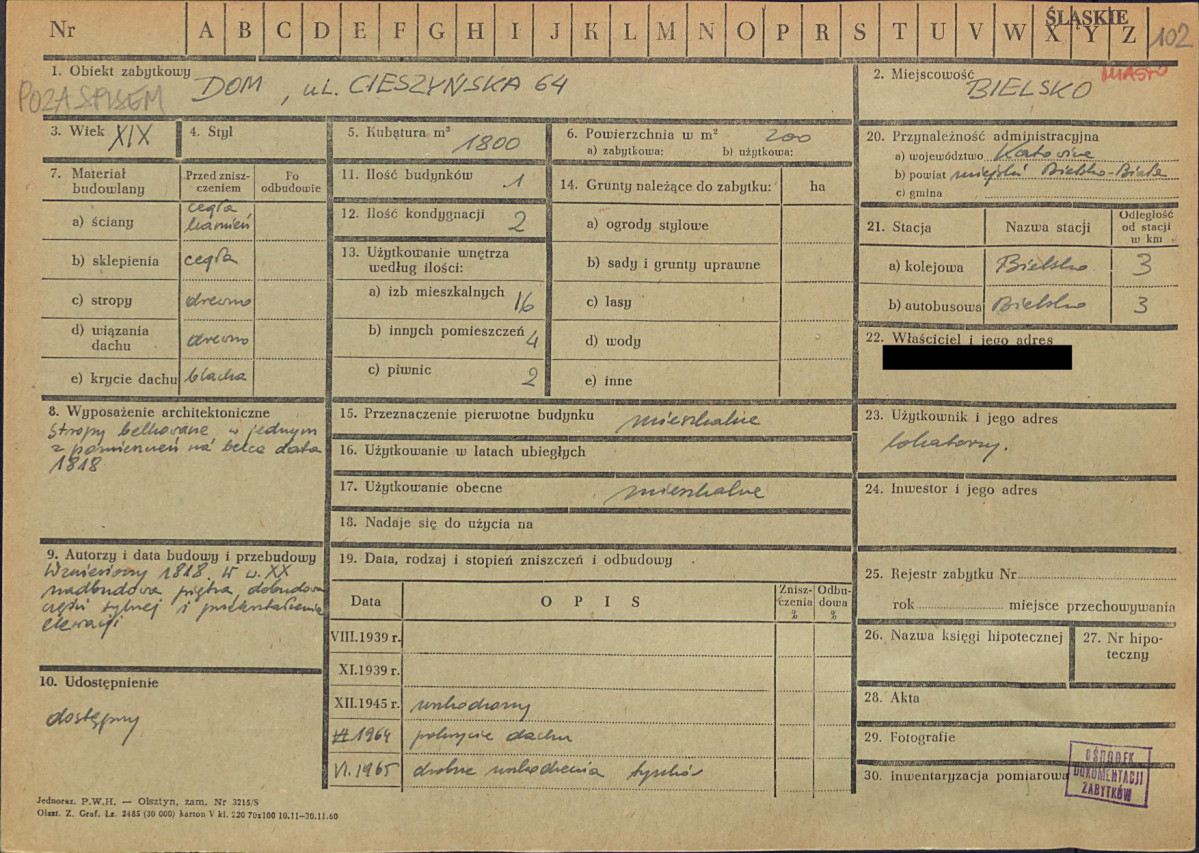 Nr A B C D E F G H I J K L M N O P R S T U V W X Y Z
ŚLĄSKIE
102
1. Obiekt zabytkowy
POZA SPISEM
DOM, ul. CIESZYŃSKA 64
2. Miejscowość MIASTO
BIELSKO
3. Wiek XIX
4. Styl
5. Kubatura m³
1800
6. Powierzchnia w m² 200
a) zabytkowa: b) użytkowa:
7. Materiał budowlany
Przed zniszczeniem
Po odbudowie
a) ściany cegła kamień
b) sklepienia cegła
c) stropy drewno
d) wiązania dachu drewno
e) krycie dachu blacha
8. Wyposażenie architektoniczne
stropy belkowane, w jednym
z pomieszczeń na belce data
1818
9. Autorzy i data budowy i przebudowy
Wzniesiony 1818. W w. XX
nadbudowa piętra dobudowa
części tylnej i przekształcenie
elewacji
10. Udostępnienie
dostępny
11. Ilość budynków 1
12. Ilość kondygnacji 2
13. Użytkowanie wnętrza
według ilości:
a) izb mieszkalnych 16
b) innych pomieszczeń 4
c) piwnic 2
14. Grunty należące do zabytku: ha
a) ogrody stylowe
b) sady i grunty uprawne
c) lasy
d) wody
e) inne
15. Przeznaczenie pierwotne budynku mieszkalne
16. Użytkowanie w latach ubiegłych
17. Użytkowanie obecne mieszkalne
18. Nadaje się do użycia na
19. Data, rodzaj i stopień zniszczeń i odbudowy
Data OPIS Zniszczenia % Odbudowa %
VIII.1939 r.
XI.1939 r.
XII.1945 r. uszkodzony
1964 pokrycie dachu
VI.1965 drobne uszkodzenia tynków
20. Przynależność administracyjna
a) województwo Katowice
b) powiat miejski Bielsko-Biała
c) gmina
21. Stacja Nazwa stacji Odległość od stacji w km
a) kolejowa Bielsko 3
b) autobusowa Bielsko 3
22. Właściciel i jego adres
23. Użytkownik i jego adres
lokatorzy.
24. Inwestor i jego adres
25. Rejestr zabytku Nr
rok miejsce przechowywania
26. Nazwa księgi hipotecznej
27. Nr hipoteczny
28. Akta
29. Fotografie
30. Inwentaryzacja pomiarowa
OŚRODEK
DOKUMENTACJI
ZABYTKÓW
Jednoraz. P.W.H. — Olsztyn, zam. Nr 3215/S
Olszt. Z. Graf. Lz. 2485 (30 000) karton V kl. 220 70x100 10.11—30.11.60